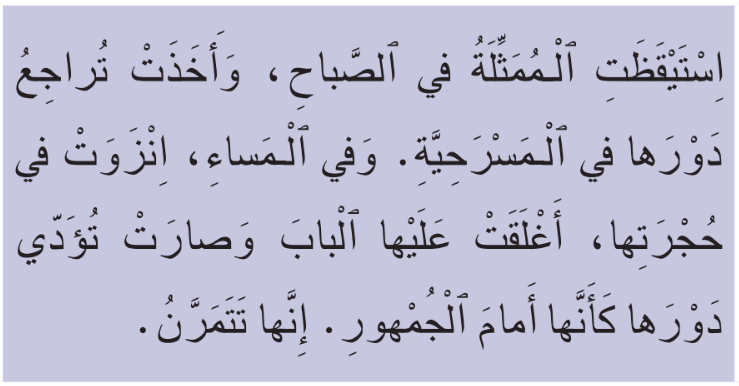 اِسْتَيْقَظَتِ ٱلْمُمَثِّلَةُ في ٱلصَّباحِ، وَأَخَذَتْ تُراجِعُ
دَوْرَها في ٱلْمَسْرَحِيَّةِ. وَفي ٱلْمَساءِ، اِنْزَوَتْ في
حُجْرَتِها، أَغْلَقَتْ عَلَيْها ٱلْبابَ وَصارَتْ تُؤَدّي
دَوْرَها كَأَنَّها أَمامَ ٱلْجُمْهورِ. إِنَّها تَتَمَرَّنُ.